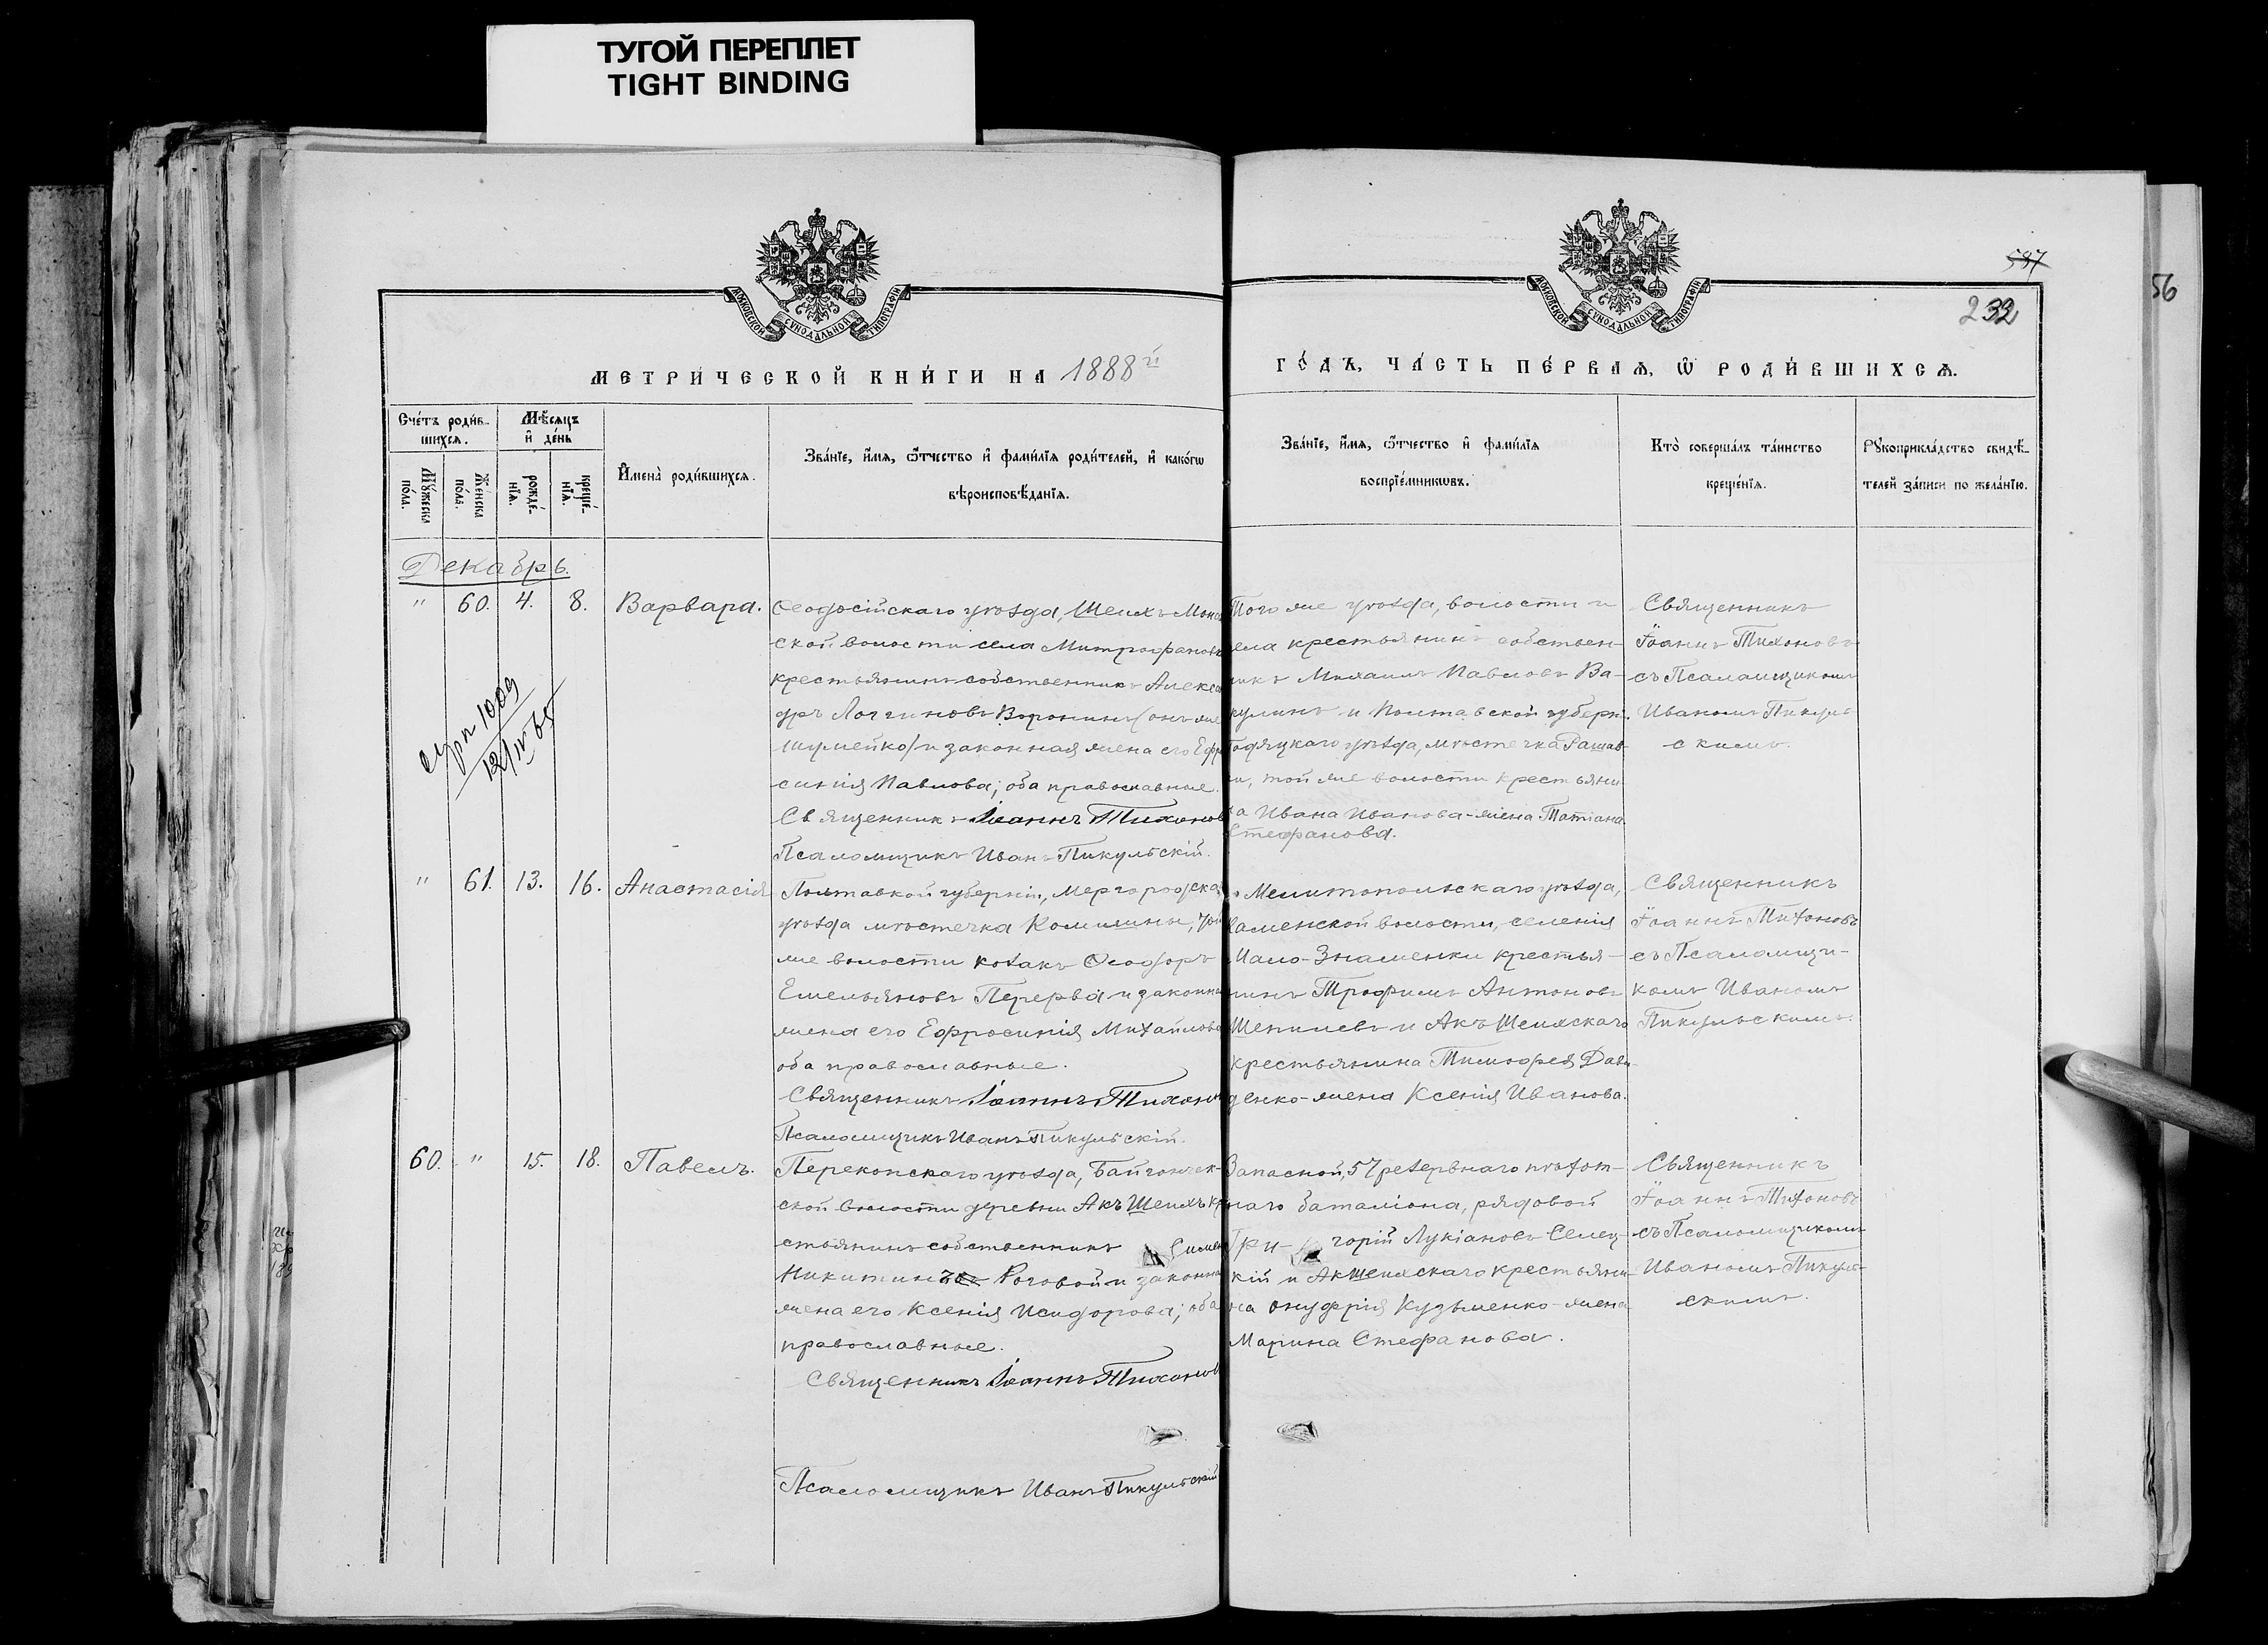 ТУГОЙ ПЕРЕПЛЕТ
TIGHT BINDING
587
56
232
МОСКОВСКОЙ СѴНОДАЛЬНОЙ ТИПОГРАФІИ
МОСКОВСКОЙ СѴНОДАЛЬНОЙ ТИПОГРАФІИ
МЕТРИ́ЧЕСКОЙ КНИ́ГИ НА 1888й
ГО́ДЪ, ЧА́СТЬ ПЕ́РВАѦ, Ѿ РОДИ́ВШИХСѦ.
Счéтъ роди́в-
шихсѧ.
Мѣ́сѧцъ
и҆ де́нь
Мꙋ́жеска
по́ла.
Же́нска
по́ла.
рожде́-
нїѧ.
креще́-
нїѧ.
И҆мена̀ роди́вшихсѧ.
Зва́нїе, и҆́мѧ, ѻ҆́тчество и҆ фами́лїѧ роди́телей, и҆ како́гѡ
вѣроисповѣ́данїѧ.
Зва́нїе, и҆́мѧ, ѻ҆́тчество и҆ фами́лїѧ
воспрїе́мникѡвъ.
Кто̀ соверша́лъ та́инство
креще́нїѧ.
Рꙋкоприкла́дство свидѣ́-
телей за́писи по жела́нїю.
Декабрь.
" 60. 4. 8. Варвара.
Ѳеодосійскаго уѣзда, Шеихъ-Мона
ской волости села Митрофановк
крестьянинъ собственникъ Алекса
дръ Логгиновъ Воронинъ (онъ же
Шумейко) и законная жена его Ефро
синія Павлова; оба православные.
Священникъ Іоаннъ Тихонов
Псаломщикъ Иванъ Пикульскій.
Того же уѣзда, волости и
села крестьянинъ собствен-
никъ Михаилъ Павловъ Ва-
кулинъ и Полтавской губерн.
Гадяцкаго уѣзда, мѣстечка Рашав-
ки, той же волости крестьяни
на Ивана Иванова-жена Татіана
Стефанова.
Священникъ
Іоаннъ Тихоновъ
съ Псаломщикомъ
Иваномъ Пикуль
скимъ.
12/IV 65
" 61. 13. 16. Анастасія
Полтавкой губерніи, Мергородска
уѣзда мѣстечка Комишны, той
же волости козакъ Ѳеодоръ
Емельяновъ Перерва и законна
жена его Ефросинія Михайлова
оба православные.
Священникъ Іоаннъ Тихонов
Псаломщикъ Иванъ Пикульскій.
Мелитопольскаго уѣзда,
Каменской волости, селенія
Мало-Знаменки крестья-
нинъ Трофимъ Антоновъ
Шепилевъ и Акъ Шеихскаго
крестьянина Тимофея Дави-
денко-жена Ксенія Иванова.
Священникъ
Іоаннъ Тихоновъ
съ Псаломщи-
комъ Иваномъ
Пикульскимъ.
60. " 15. 18. Павелъ.
Перекопскаго уѣзда, Байгончек-
ской волости деревни Акъ Шеихъ кр
стьянинъ собственникъ Симео
Никитинъ Роговой и законна
жена его Ксенія Исидорова; оба
православные.
Священникъ Іоаннъ Тихонов
Псаломщикъ Иванъ Пикульскій
Запасной, 57 резервнаго пѣхот-
наго баталіона, рядовой
Гри- горій Лукіановъ Селец-
кій и Акшеихскаго крестьяни-
на Онуфрія Кузьменко-жена
Марина Стефанова.
Священникъ
Іоаннъ Тихоновъ
съ Псаломщикомъ
Иваномъ Пикуль-
скимъ.